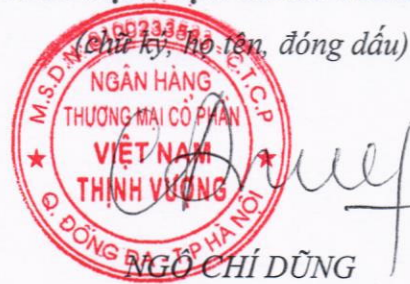 (chữ ký, họ tên, đóng dấu)
M.S.D.N: 0100233583 - C.T.C.P
NGÂN HÀNG
THƯƠNG MẠI CỔ PHẦN
VIỆT NAM
THỊNH VƯỢNG
Q. ĐỐNG ĐA - T.P HÀ NỘI
NGÔ CHÍ DŨNG